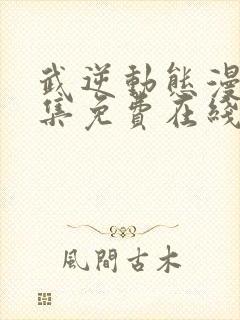 武逆動態漫
集免費在綫
風間古木